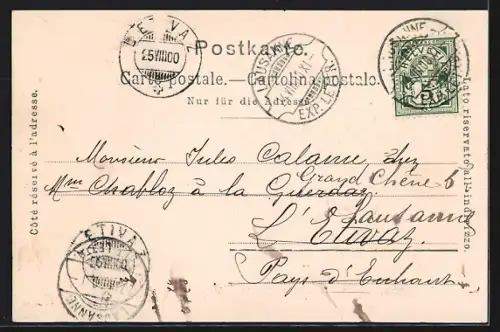 Postkarte.
Carte postale. — Cartolina postale.
Nur für die Adresse.
Côté réservé à l'adresse.
Lato riservato all'indirizzo.
ETIVAZ
25 VIII 00
LAUSANNE
EXP. LET.
LAUSANNE
EXP. LET.
5
Monsieur Jules Calame chez
Mme Chabloz à la
Grand Chêne 6
Lausanne
L'Etivaz
Pays d'Enhaut
ETIVAZ
25 VIII 00
LAUSANNE